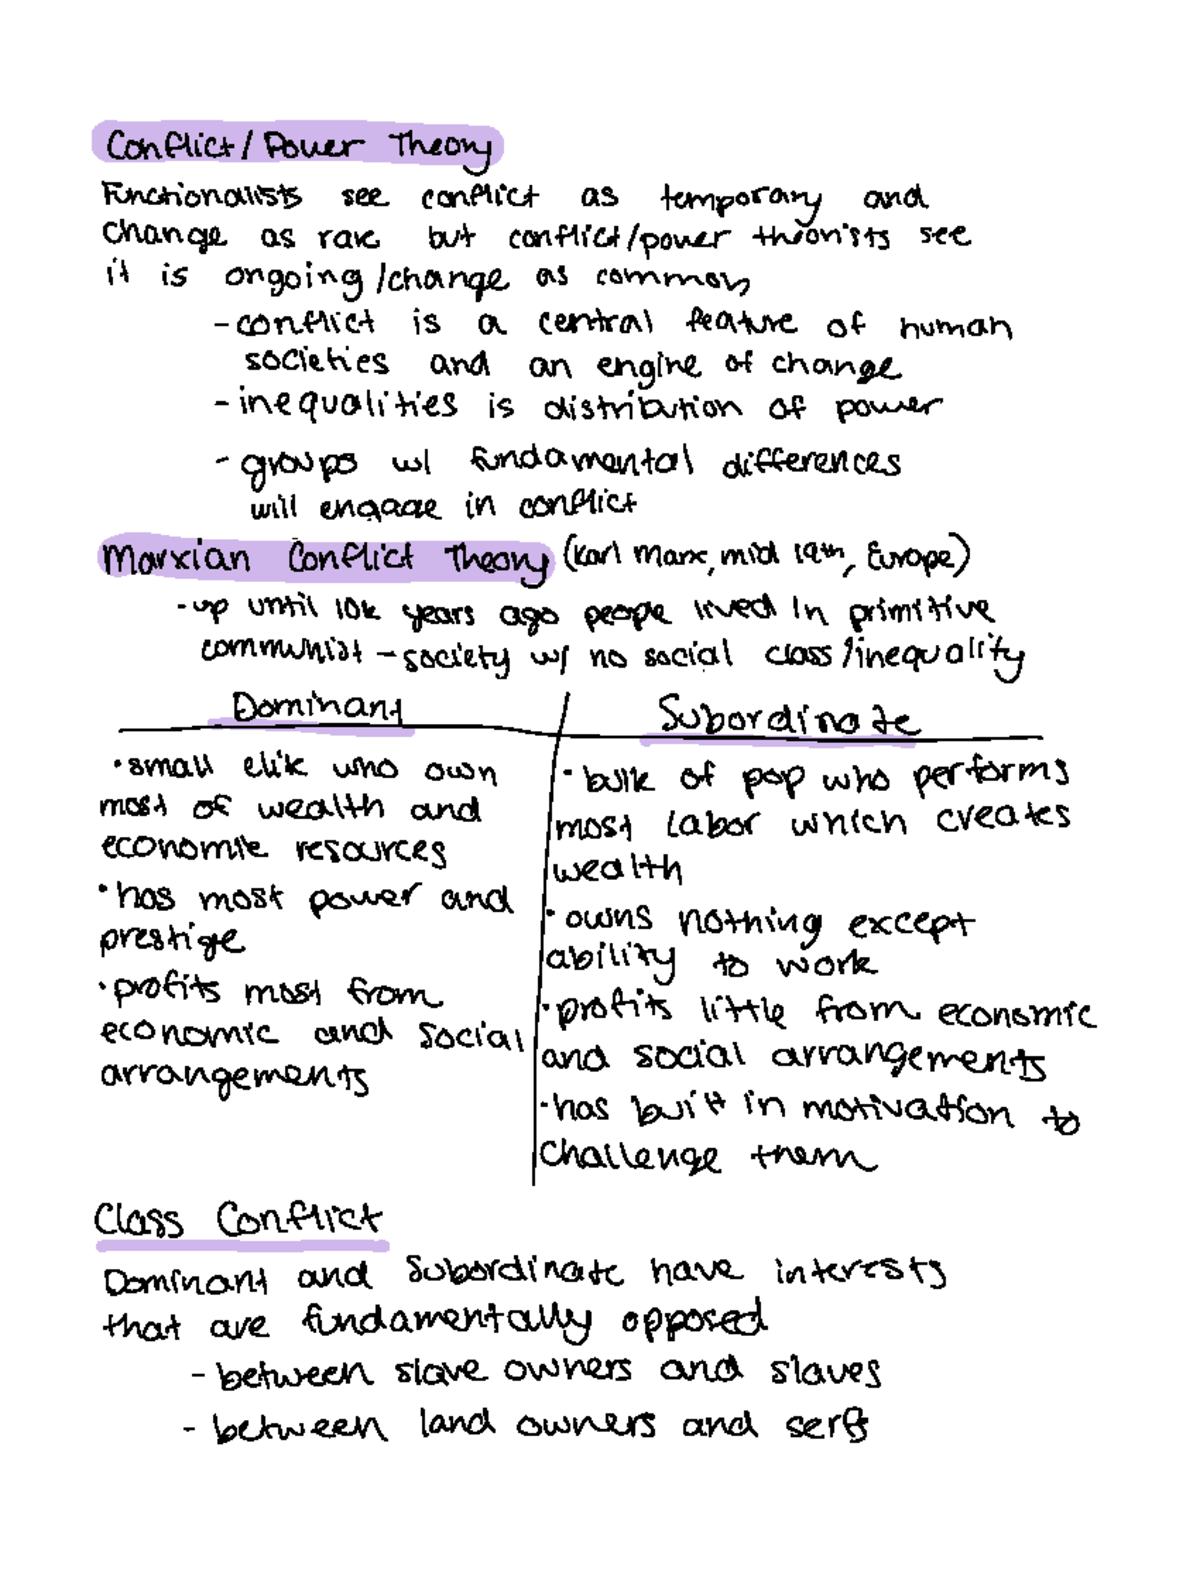 Conflict/Power Theory
Functionalists see conflict as temporary and
change as rare but conflict/power theorists see
it is ongoing/change as common
- conflict is a central feature of human
societies and an engine of change
- inequalities is distribution of power
- groups w/ fundamental differences
will engage in conflict
Marxian Conflict Theory (Karl Marx, mid 19th, Europe)
- up until 10k years ago people lived in primitive
communist - society w/ no social class/inequality
Dominant
• small elite who own
most of wealth and
economic resources
• has most power and
prestige
• profits most from
economic and social
arrangements
Subordinate
• bulk of pop who performs
most labor which creates
wealth
• owns nothing except
ability to work
• profits little from economic
and social arrangements
• has built in motivation to
challenge them
Class Conflict
Dominant and Subordinate have interests
that are fundamentally opposed
- between slave owners and slaves
- between land owners and serfs